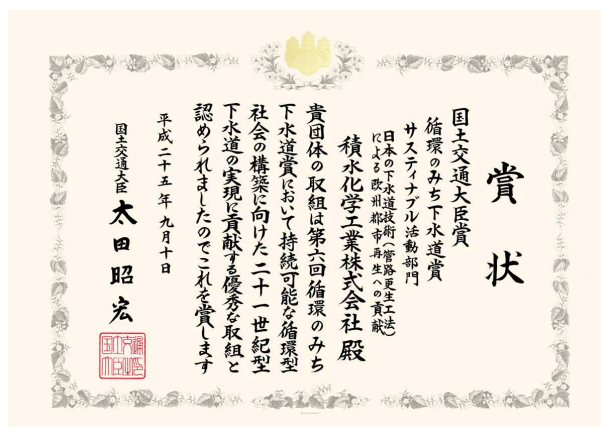 賞状
国土交通大臣賞
循環のみち下水道賞
サスティナブル活動部門
日本の下水道技術(管路更生工法)
による欧州都市再生への貢献
積水化学工業株式会社殿
貴団体の取組は第六回循環のみち
下水道賞において持続可能な循環型
社会の構築に向けた二十一世紀型
下水道の実現に貢献する優秀な取組と
認められましたのでこれを賞します
平成二十五年九月十日
国土交通大臣 太田昭宏